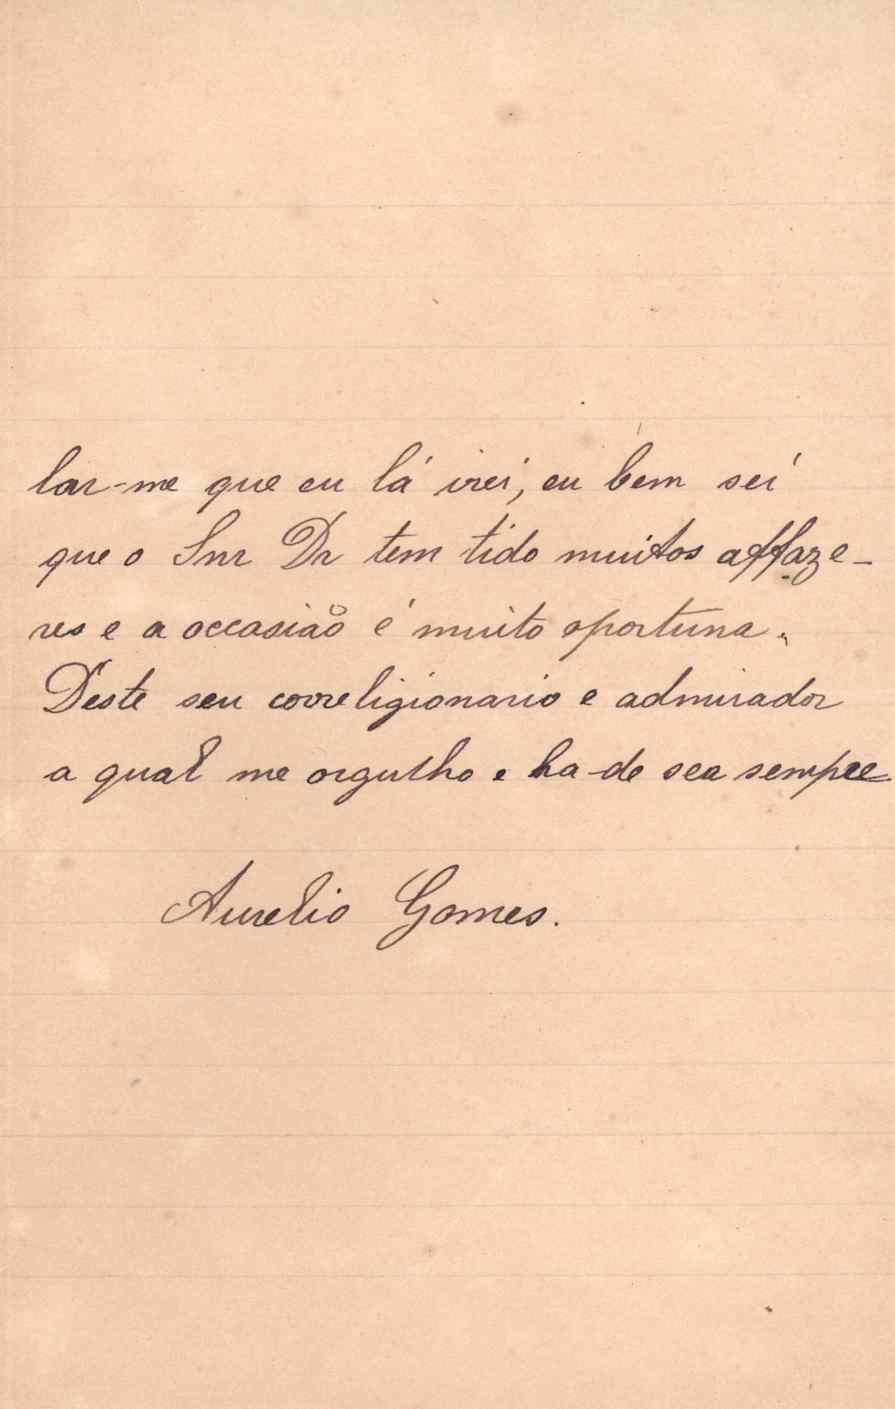 lar-me que eu lá irei, eu bem sei
que o Snr Dr tem tido muitos affaze-
res e a occasião é muito oportuna.
Deste seu correligionario e admirador
a qual me orgulho e ha-de ser sempre
Aurelio Gomes.